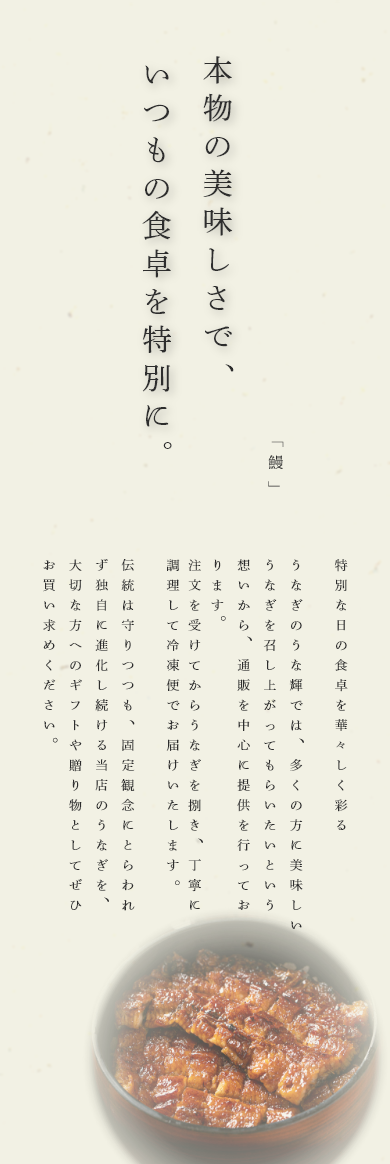 本物の美味しさで、
いつもの食卓を特別に。
「鰻」
特別な日の食卓を華々しく彩る
うなぎのうな輝では、多くの方に美味しい
うなぎを召し上がってもらいたいという
想いから、通販を中心に提供を行ってお
ります。
注文を受けてからうなぎを捌き、丁寧に
調理して冷凍便でお届けいたします。
伝統は守りつつも、固定観念にとらわれ
ず独自に進化し続ける当店のうなぎを、
大切な方へのギフトや贈り物としてぜひ
お買い求めください。